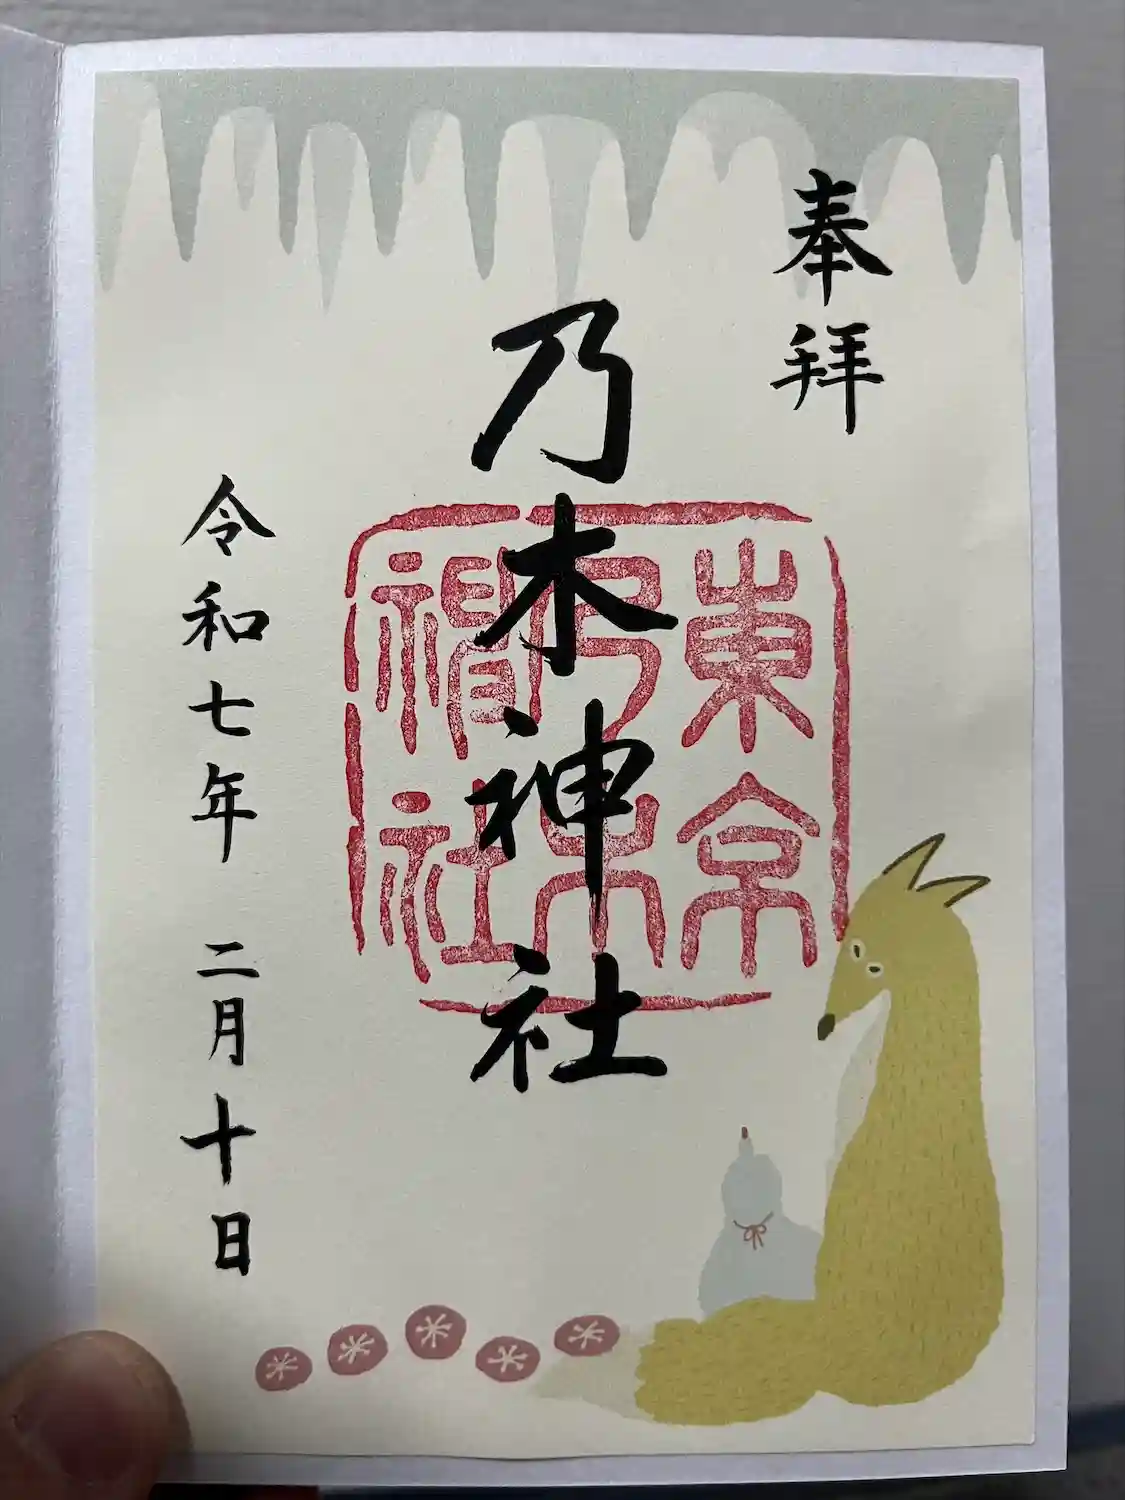 奉拝
乃木神社
東京
乃木
神社
令和七年 二月十日